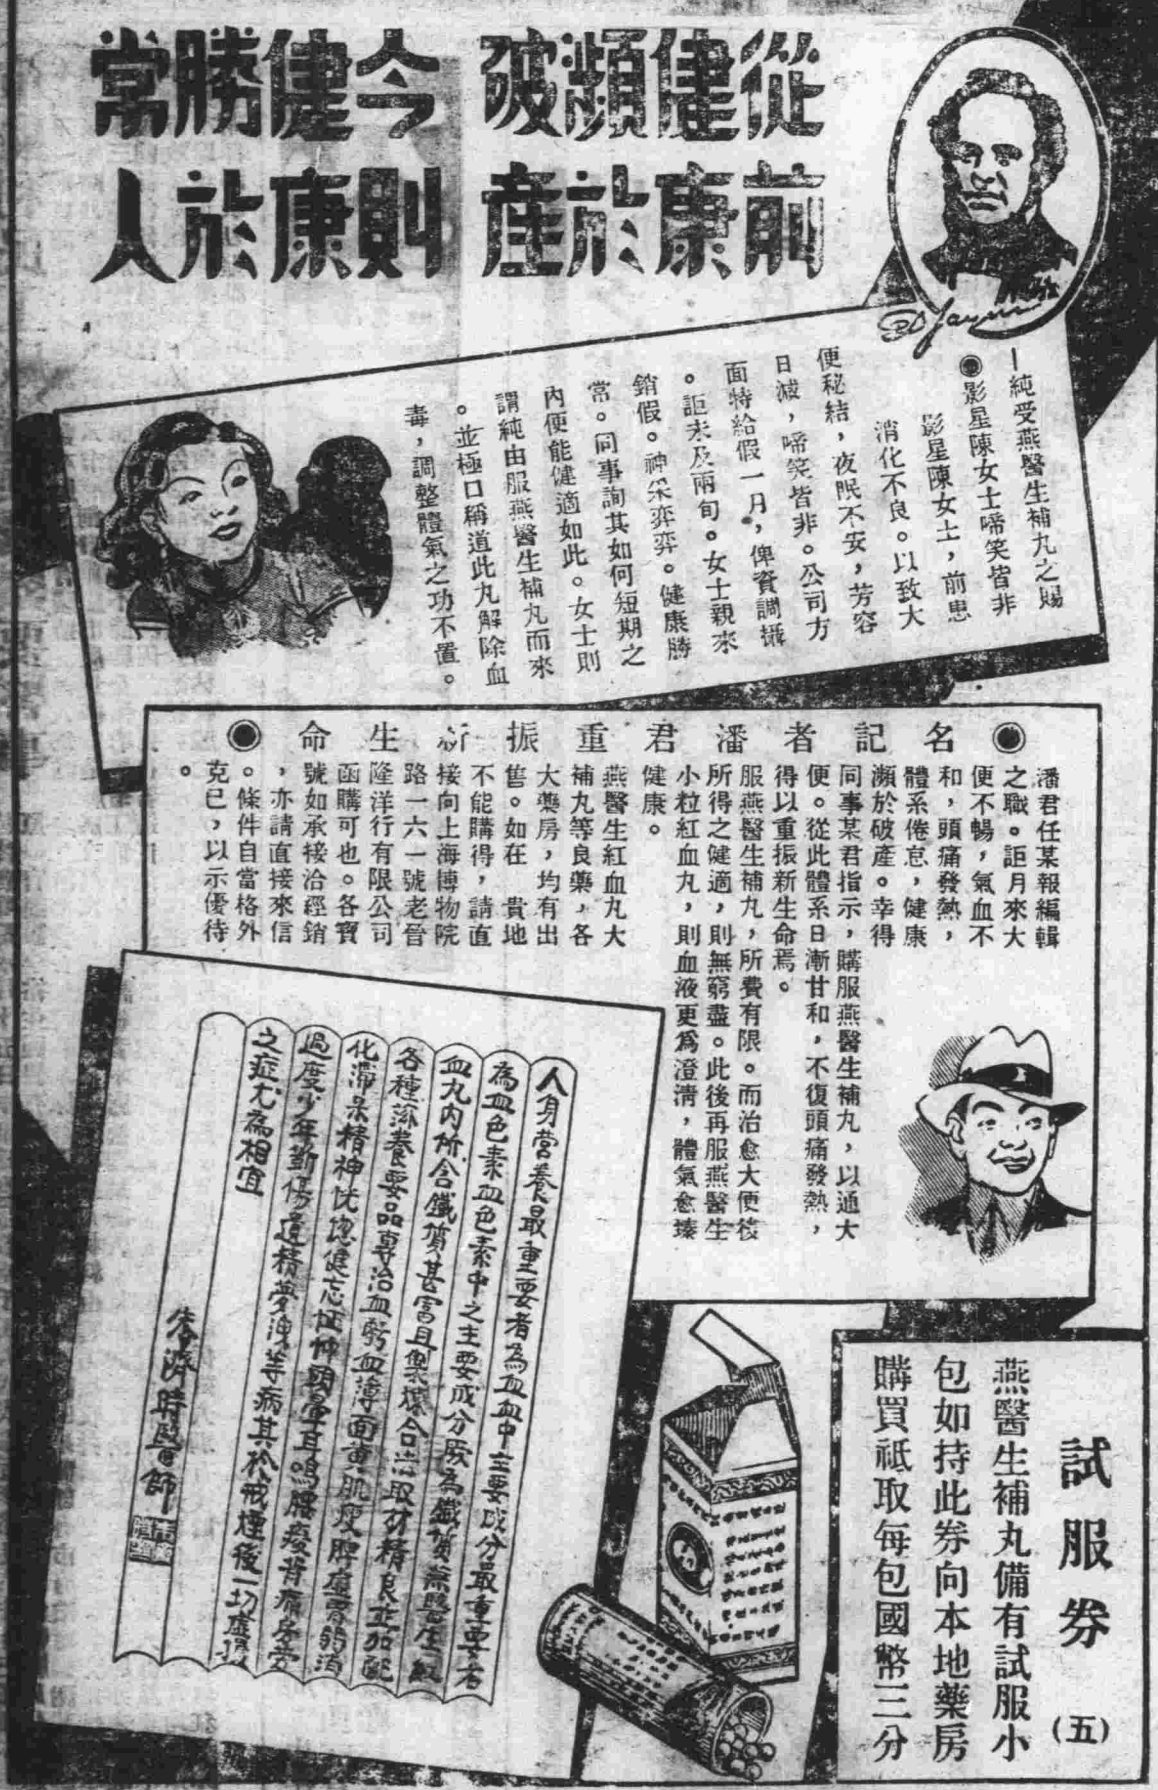 從前
健康
瀕於
破產
今則
健康
勝於
常人
—純受燕醫生補丸之賜
◉影星陳女士啼笑皆非
影星陳女士,前患
消化不良。以致大
便秘結,夜眠不安,芳容
日減,啼笑皆非。公司方
面特給假一月,俾資調攝
。詎未及兩旬。女士親來
銷假。神采弈弈。健康勝
常。同事詢其如何短期之
內便能健適如此。女士則
謂純由服燕醫生補丸而來
。並極口稱道此丸解除血
毒,調整體氣之功不置。
◉名記者潘君重振新生命◉
潘君任某報編輯
之職。詎月來大
便不暢,氣血不
和,頭痛發熱,
體系倦怠,健康
瀕於破產。幸得
同事某君指示,購服燕醫生補丸,以通大
便。從此體系日漸甘和,不復頭痛發熱,
得以重振新生命焉。
服燕醫生補丸,所費有限。而治愈大便後
所得之健適,則無窮盡。此後再服燕醫生
小粒紅血丸,則血液更為澄清,體氣愈臻
健康。
燕醫生紅血丸大
補丸等良藥,各
大藥房,均有出
售。如在 貴地
不能購得,請直
接向上海博物院
路一六一號老晉
隆洋行有限公司
函購可也。各寶
號如承接洽經銷
,亦請直接來信
。條件自當格外
克已,以示優待
。
人身營養最重要者為血血中主要成分最重要者
為血色素血色素中之主要成分厥為鐵質燕醫生紅
血丸內所含鐵質甚富且製煉合法取材精良並加配
各種滋養要品專治血虧血薄面黃肌瘦脾虛胃弱消
化滯呆精神恍惚健忘怔忡頭暈耳鳴腰痠背痛房勞
過度少年斲傷遺精夢洩等病其於戒煙後一切虛損
之症尤為相宜
朱濟時醫師
試服券(五)
燕醫生補丸備有試服小
包如持此券向本地藥房
購買祗取每包國幣三分